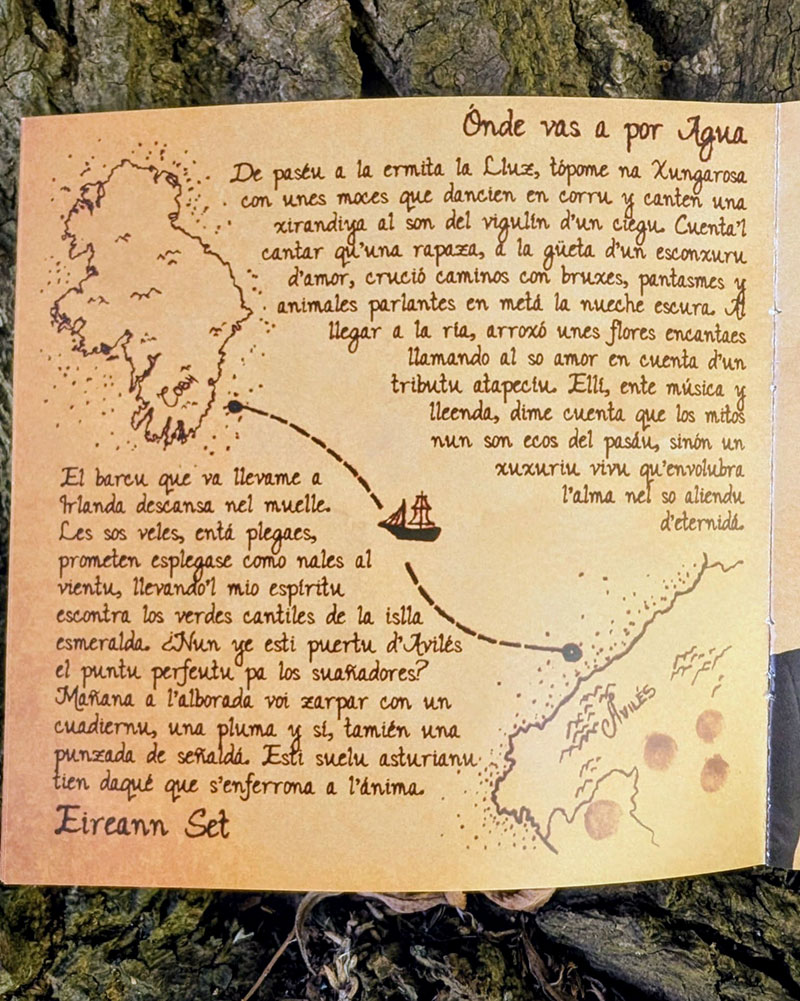 Ónde vas a por Agua
De paséu a la ermita la Lluz, tópome na Xungarosa
con unes moces que dancien en corru y canten una
xirandiya al son del vigulín d'un ciegu. Cuenta'l
cantar qu'una rapaza, a la güeta d'un esconxuru
d'amor, crució caminos con bruxes, pantasmes y
animales parlantes en metá la nueche escura. Al
llegar a la ría, arroxó unes flores encantaes
llamando al so amor en cuenta d'un
tributu atapecíu. Ellí, ente música y
lleenda, dime cuenta que los mitos
nun son ecos del pasáu, sinón un
xuxuríu vivu qu'envolubra
l'alma nel so aliendu
d'eternidá.
Cobh
El barcu que va llevame a
Irlanda descansa nel muelle.
Les sos veles, entá plegaes,
prometen esplegase como nales al
vientu, llevando'l mio espíritu
escontra los verdes cantiles de la islla
esmeralda. ¿Nun ye esti puertu d'Avilés
el puntu perfeutu pa los suañadores?
Mañana a l'alborada voi zarpar con un
cuadiernu, una pluma y sí, tamién una
punzada de señaldá. Esti suelu asturianu
tien daqué que s'enferrona a l'ánima.
Eireann Set
Avilés